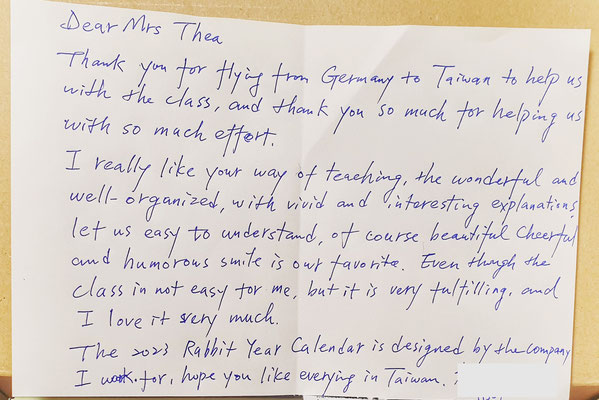 Dear Mrs Thea
Thank you for flying from Germany to Taiwan to help us
with the class, and thank you so much for helping us
with so much effort.
I really like your way of teaching, the wonderful and
well-organized, with vivid and interesting explanations,
let us easy to understand, of course beautiful Cheerful
and humorous smile is our favorite. Even though the
class in not easy for me, but it is very fulfilling, and
I love it very much.
The 2023 Rabbit Year Calendar is designed by the company
I work for, hope you like everying in Taiwan.